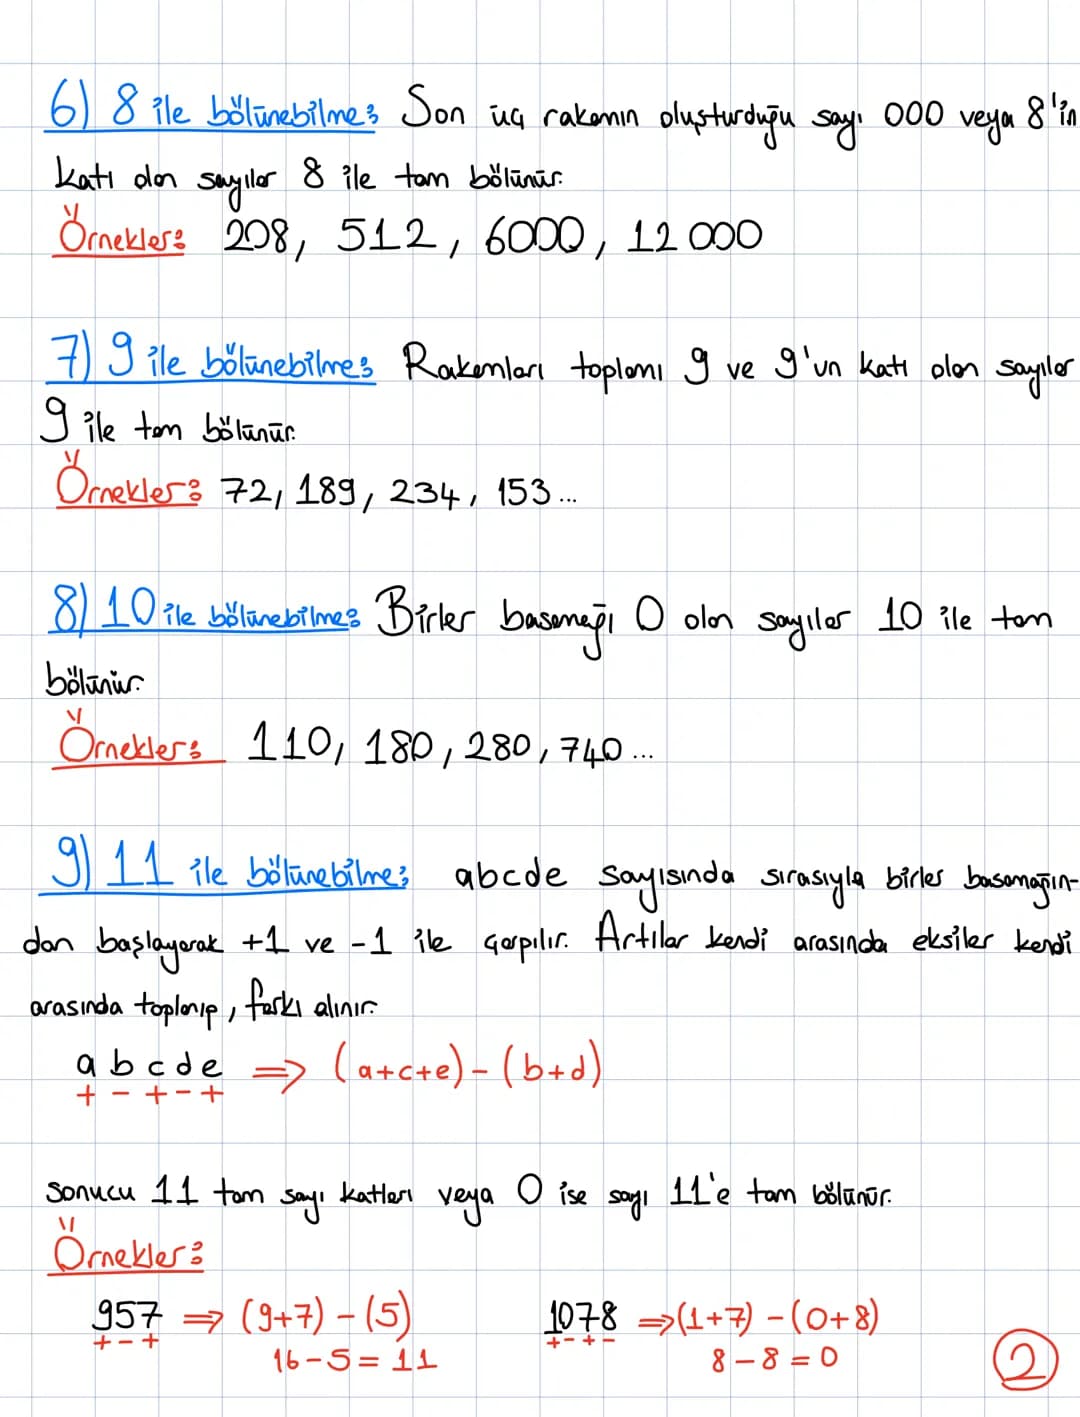 6) 8 ile bölünebilme: Son üç rakamın oluşturduğu sayı 000 veya 8'in
katı olan sayılar 8 ile tam bölünür.
Örnekler: 208, 512, 6000, 12 000
7) 9 ile bölünebilme: Rakamları toplamı 9 ve 9'un katı olan sayılar
9 ile tam bölünür.
Örnekler: 72, 189, 234, 153...
8) 10 ile bölünebilme: Birler basamağı 0 olan sayılar 10 ile tam
bölünür.
Örnekler: 110, 180, 280, 740...
9) 11 ile bölünebilme: abcde sayısında sırasıyla birler basamağın-
dan başlayarak +1 ve -1 ile çarpılır. Artılar kendi arasında eksiler kendi
arasında toplanıp, farkı alınır.
abcde ⇒ (a+c+e) - (b+d)
+ - + - +
sonucu 11 tam sayı katları veya 0 ise sayı 11'e tam bölünür.
Örnekler:
957 ⇒ (9+7) - (5) 1078 ⇒ (1+7) - (0+8)
+ - + + - + -
16 - 5 = 11 8 - 8 = 0
2